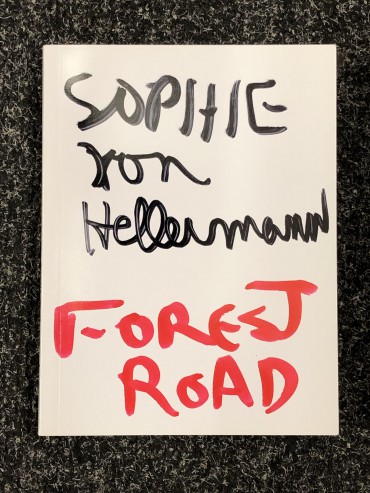 SOPHIE
von
Hellermann
FOREST
ROAD